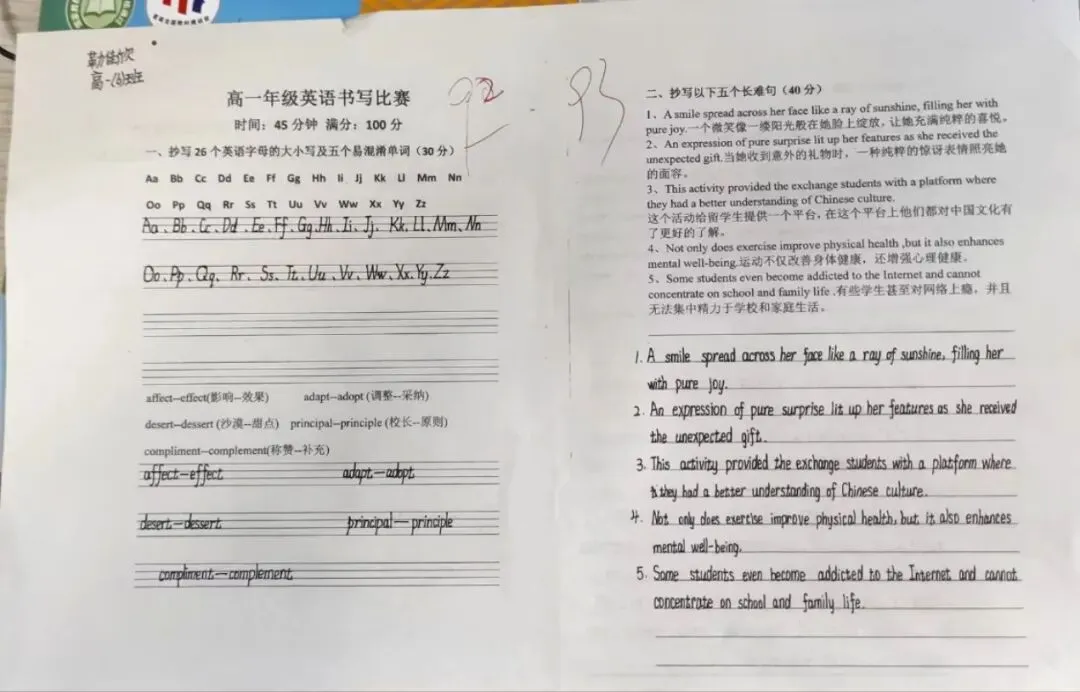 高一(6)班
高一年级英语书写比赛
时间：45分钟 满分：100分
一、抄写26个英语字母的大小写及五个易混淆单词（30分）
Aa Bb Cc Dd Ee Ff Gg Hh Ii Jj Kk Ll Mm Nn
Oo Pp Qq Rr Ss Tt Uu Vv Ww Xx Yy Zz
Aa、Bb、Cc、Dd、Ee、Ff、Gg、Hh、Ii、Jj、Kk、Ll、Mm、Nn
Oo、Pp、Qq、Rr、Ss、Tt、Uu、Vv、Ww、Xx、Yy、Zz
affect--effect(影响--效果) adapt--adopt (调整--采纳)
desert--dessert (沙漠--甜点) principal--principle (校长--原则)
compliment--complement(称赞--补充)
affect—effect adapt—adopt
desert—dessert principal—principle
compliment—complement
92
93
二、抄写以下五个长难句（40分）
1、A smile spread across her face like a ray of sunshine, filling her with
pure joy.一个微笑像一缕阳光般在她脸上绽放，让她充满纯粹的喜悦。
2、An expression of pure surprise lit up her features as she received the
unexpected gift.当她收到意外的礼物时，一种纯粹的惊讶表情照亮她
的面容。
3、This activity provided the exchange students with a platform where
they had a better understanding of Chinese culture.
这个活动给留学生提供一个平台，在这个平台上他们都对中国文化有
了更好的了解。
4、Not only does exercise improve physical health ,but it also enhances
mental well-being.运动不仅改善身体健康，还增强心理健康。
5、Some students even become addicted to the Internet and cannot
concentrate on school and family life .有些学生甚至对网络上瘾，并且
无法集中精力于学校和家庭生活。
1. A smile spread across her face like a ray of sunshine, filling her
with pure joy.
2. An expression of pure surprise lit up her features as she received
the unexpected gift.
3. This activity provided the exchange students with a platform where
they had a better understanding of Chinese culture.
4. Not only does exercise improve physical health, but it also enhances
mental well-being.
5. Some students even become addicted to the Internet and cannot
concentrate on school and family life.